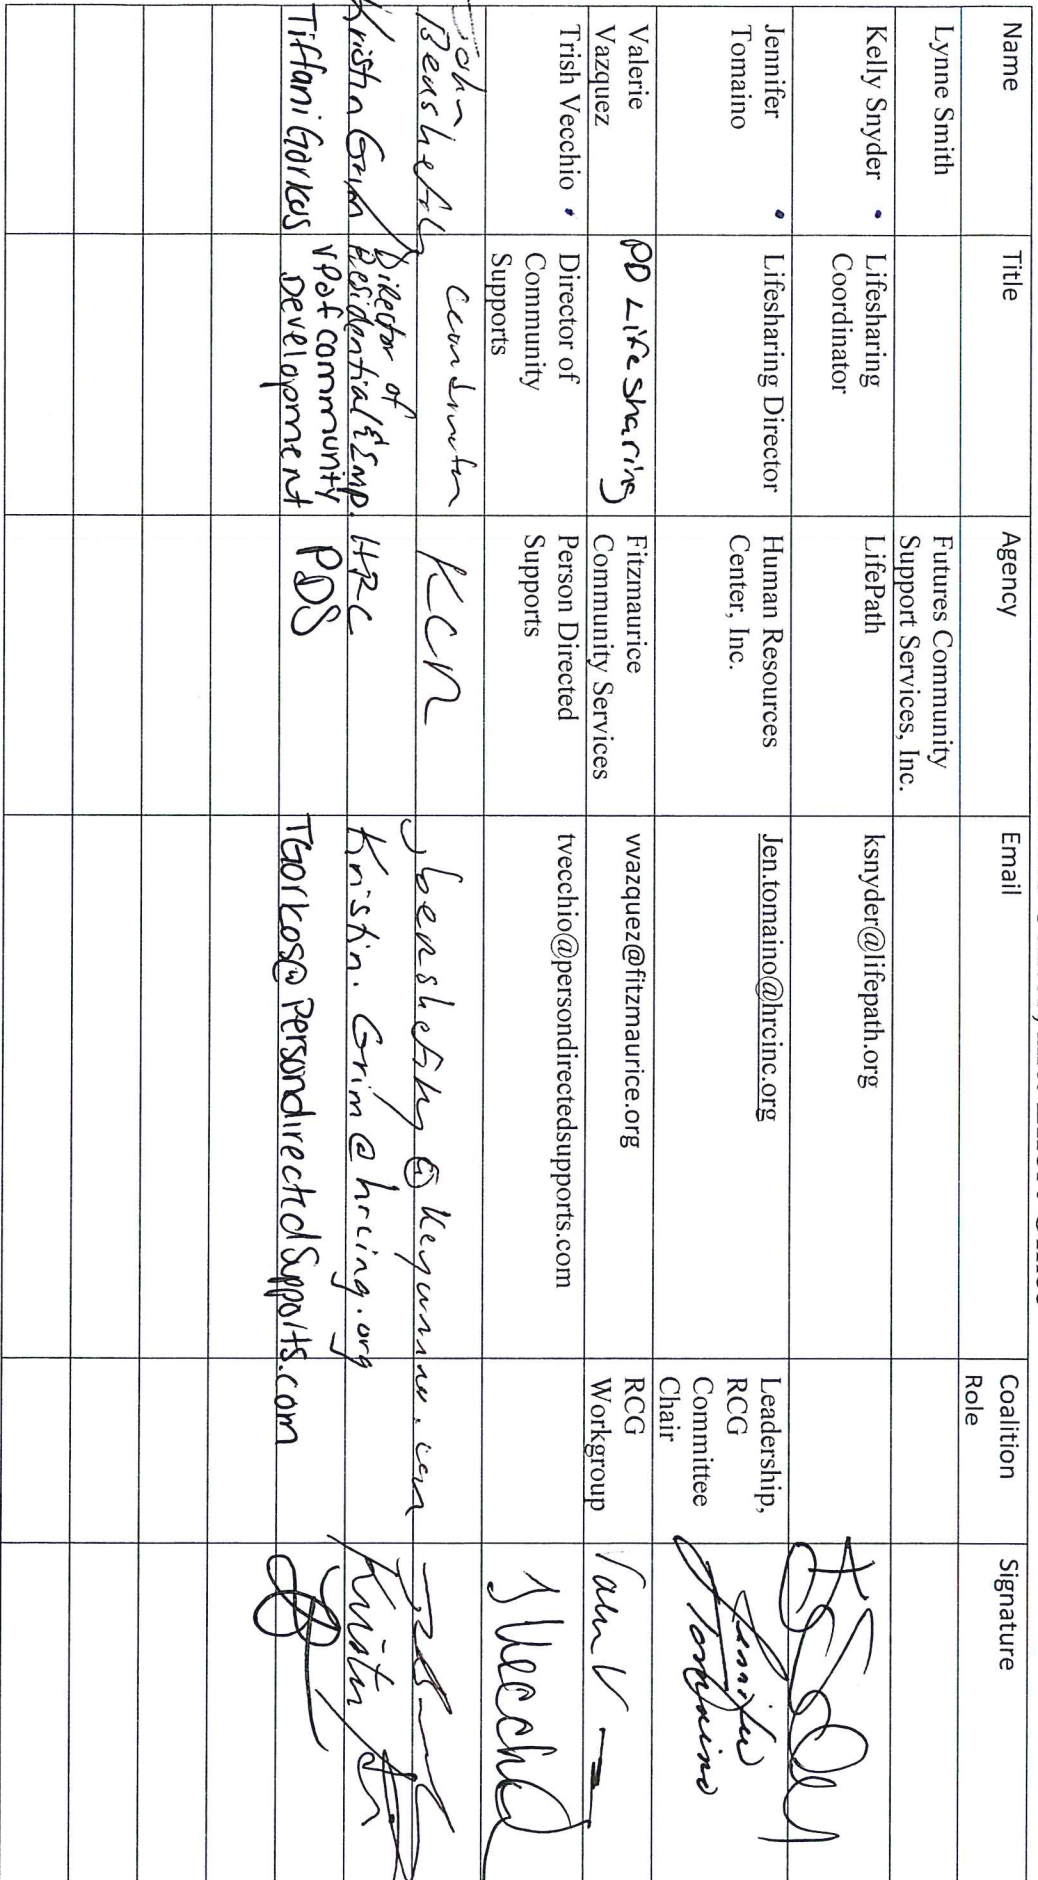 Name Title Agency Email Coalition Role Signature
Lynne Smith Futures Community Support Services, Inc.
Kelly Snyder • Lifesharing Coordinator LifePath ksnyder@lifepath.org
Jennifer Tomaino • Lifesharing Director Human Resources Center, Inc. Jen.tomaino@hrcinc.org Leadership, RCG Committee Chair Jennifer Tomaino
Valerie Vazquez PD Lifesharing Fitzmaurice Community Services vvazquez@fitzmaurice.org RCG Workgroup
Trish Vecchio • Director of Community Supports Person Directed Supports tvecchio@persondirectedsupports.com
John
Kristin Grim Director of Residential & Emp. HRC Kristin.Grim@hrcing.org Kristin
Tiffani Gorkos VP of community Development PDS TGorkos@PersondirectedSupports.com